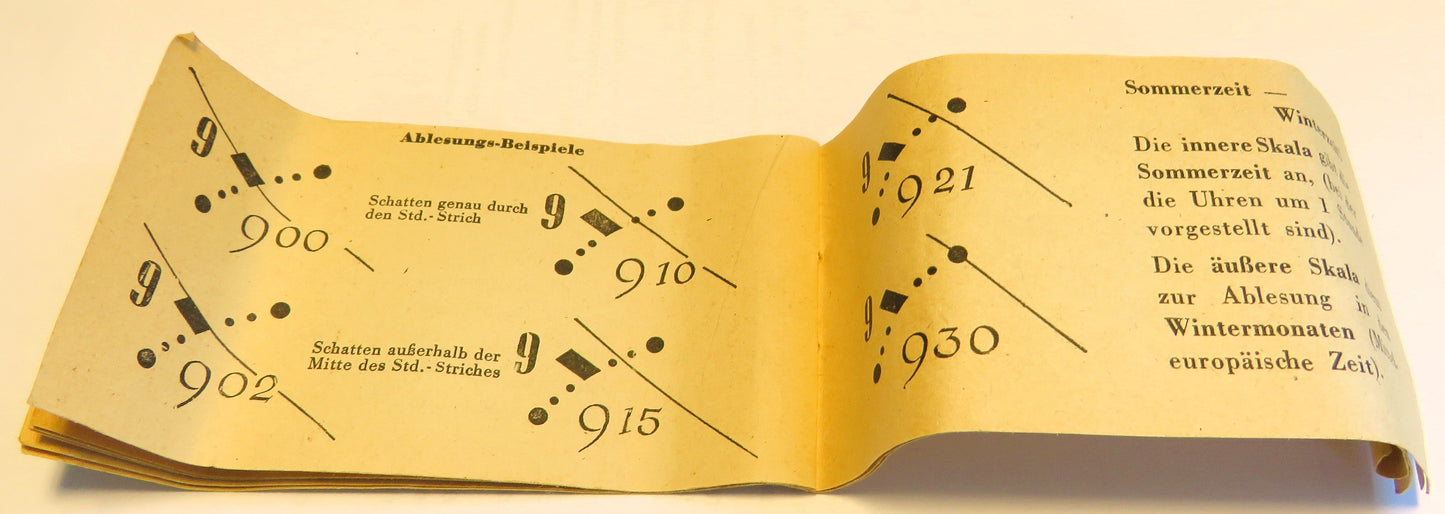 Ablesungs-Beispiele
9
9 00
Schatten genau durch
den Std.-Strich
9
9 10
9
9 02
Schatten außerhalb der
Mitte des Std.-Striches
9
9 15
9
9 21
9
9 30
Sommerzeit —
Die innere Skala
Sommerzeit an,
die Uhren um 1
vorgestellt sind).
Die äußere Skala
zur Ablesung in
Wintermonaten
europäische Zeit).